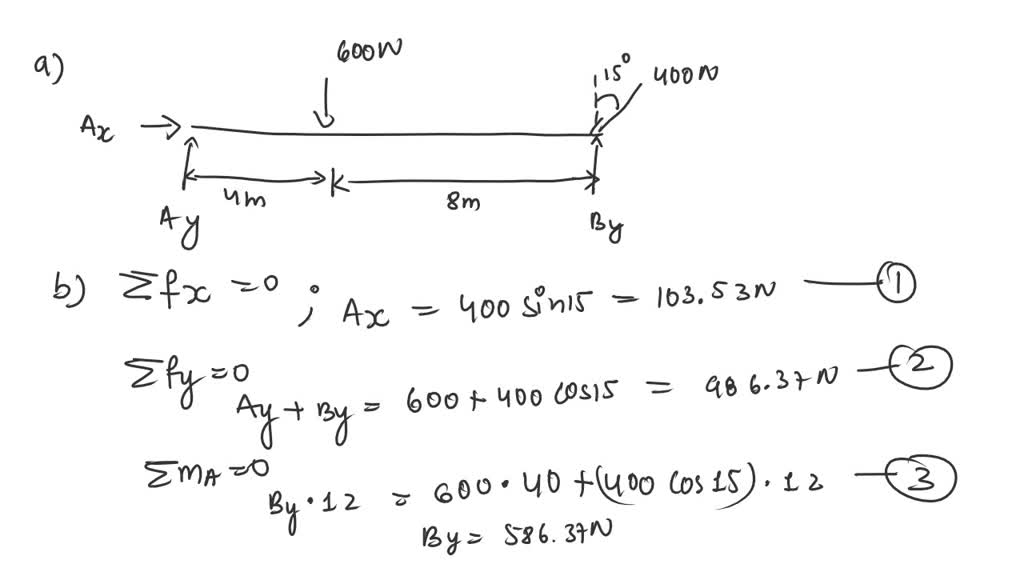 a)
600N
15° 400N
Ax
4m 8m
Ay By
b) Σfx = 0 ; Ax = 400 sin15 = 103.53N — ①
Σfy = 0
Ay + By = 600 + 400 cos15 = 986.37N — ②
ΣmA = 0
By · 12 = 600 · 40 + (400 cos 15) · 12 — ③
By = 586.37N